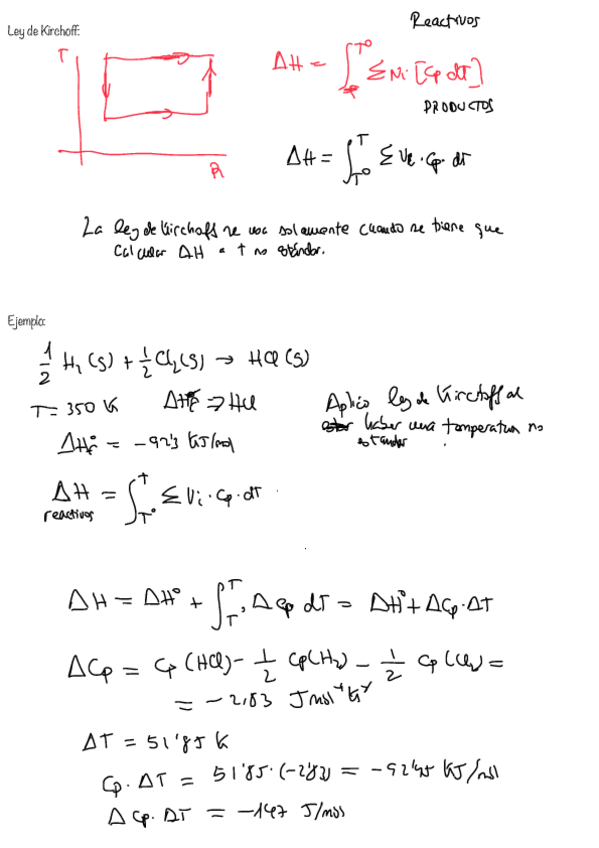 Reactivos
Ley de Kirchoff:
T
ΔH = ∫ T° Σ Ni [Cp dT]
R
PRODUCTOS
ΔH = ∫_{T°}^{T} Σ Vi · Cp · dT
La ley de Kirchoff se usa solamente cuando se tiene que
calcular ΔH a T no estándar.
Ejemplo:
1/2 H₂ (g) + 1/2 Cl₂ (g) → HCl (g)
T = 350 K ⇒ HCl
Aplico ley de Kirchoff al
haber una temperatura no
estandar
ΔHf° = -92'3 KJ/mol
ΔH = ∫_{T°}^{T} Σ Vi · Cp · dT
reactivos
ΔH = ΔH° + ∫ ΔCp dT = ΔH° + ΔCp · ΔT
ΔCp = Cp (HCl) - 1/2 Cp (H₂) - 1/2 Cp (Cl₂) =
= J mol⁻¹ K⁻¹
ΔT = 51'85 K
Cp · ΔT = 51'85 · (-2'83) = -92'45 KJ/mol
ΔCp · ΔT = -147 J/mol